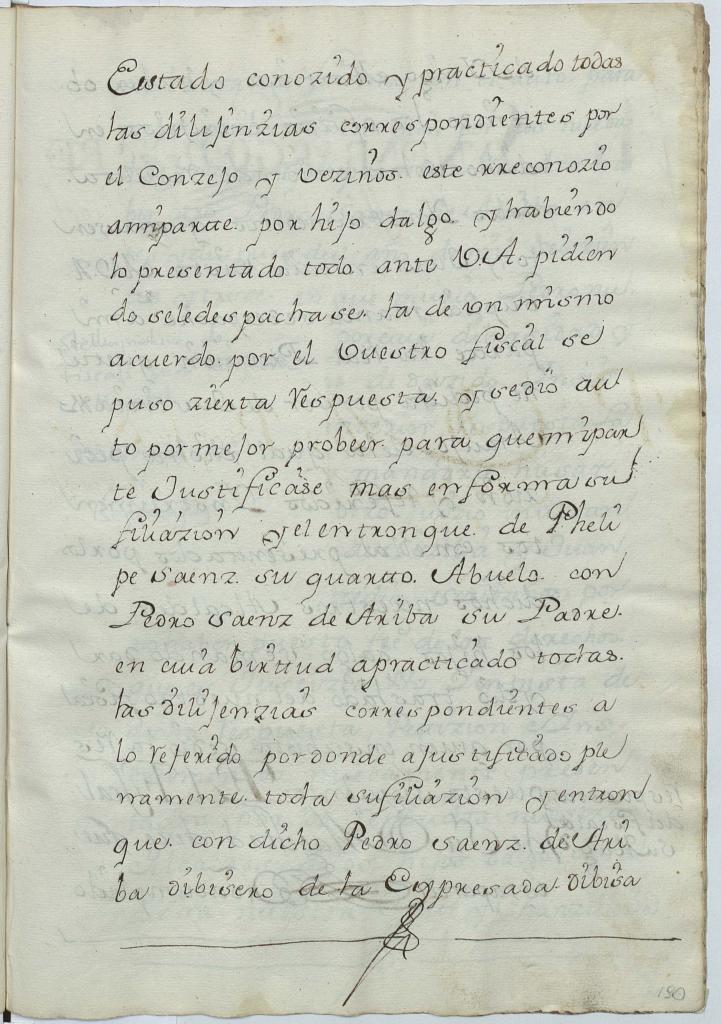 Eestado conozido y practicado todas
las dilijenzias correspondientes por
el Conzejo y Vezinos. este rreconozio
amiparte. por hijo dalgo. y habiendo
lo presentado todo ante V.A. pidien
do seledespachase. la de un mismo
acuerdo. por el Vuestro fiscal se
puso zierta respuesta, y sedio au
to por mejor probeer. para que mi par
te Justificase mas en forma su
filiazion y el entronque. de Pheli
pe saenz. su quartto. Abuelo. con
Pedro saenz de Ariba su Padre.
en cuia birttud a practicado todas.
las Dilijenzias correspondientes a
lo referido por donde a justificado ple
namente. toda su filiazion y entron
que. con dicho Pedro saenz. de Ari
ba dibisero de la Expresada. Dibisa
190